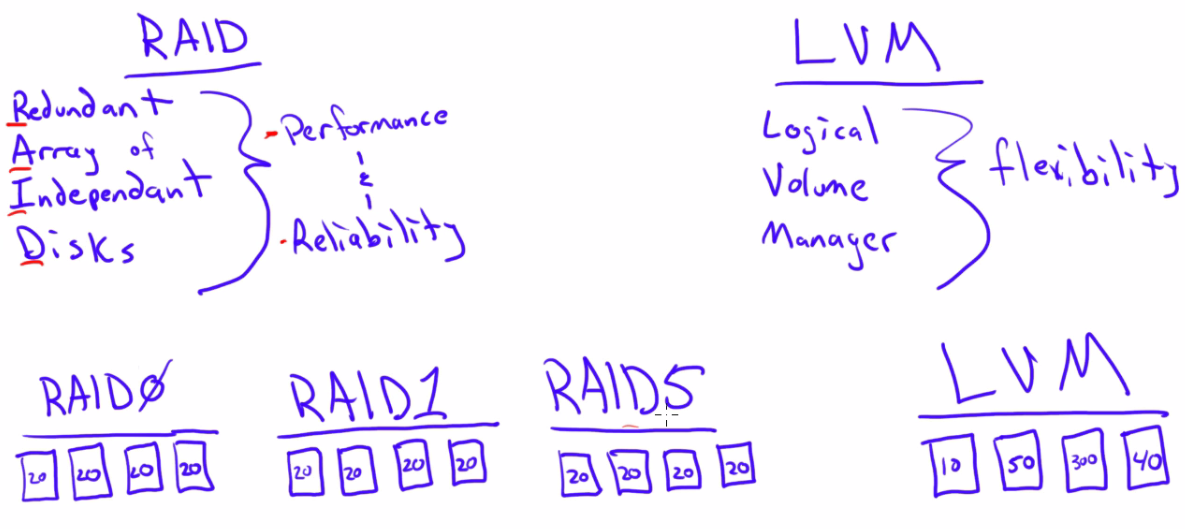 RAID
Redundant
Array of
Independant
Disks
-Performance
&
-Reliability
LVM
Logical
Volume
Manager
flexibility
RAID0
20 20 20 20
RAID1
20 20 20 20
RAID5
20 20 20 20
LVM
10 50 300 40